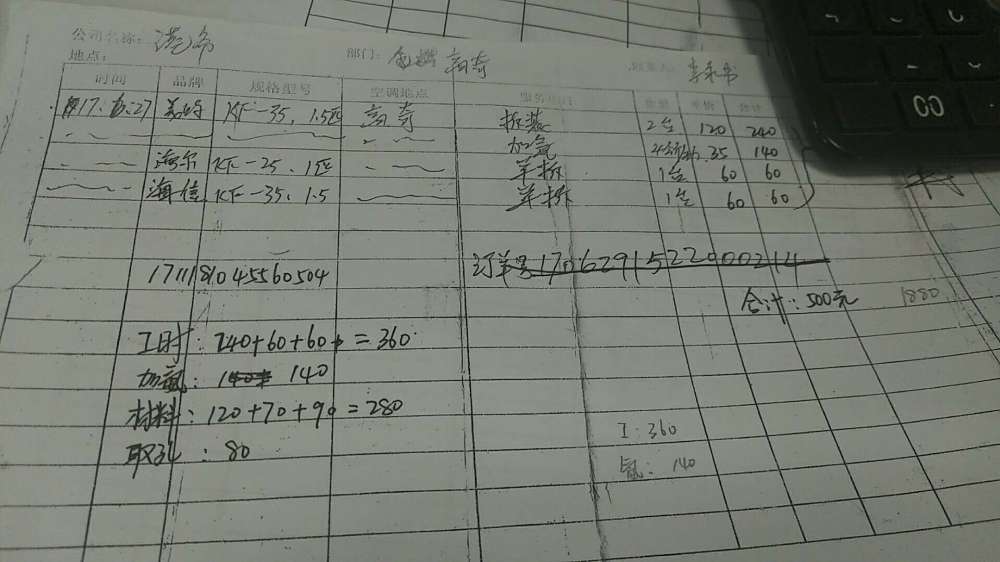 公司名称: 港币 部门: 高奇
地点:
时间 品牌 规格型号 空调地点 服务项目 数量 单价 合计
17. 6.27 美的 KF-35. 1.5匹 高奇 拆装 2台 120 240
加氟 35 140
海尔 KF-25. 1匹 单拆 1台 60 60
海信 KF-35. 1.5 单拆 1台 60 60
1711181045560504 订单号170629152200214
合计: 500元 1880
工时: 240+60+60 = 360
加氟: 140 140
材料: 120+70+90 = 280
取孔: 80
工: 360
氟: 140